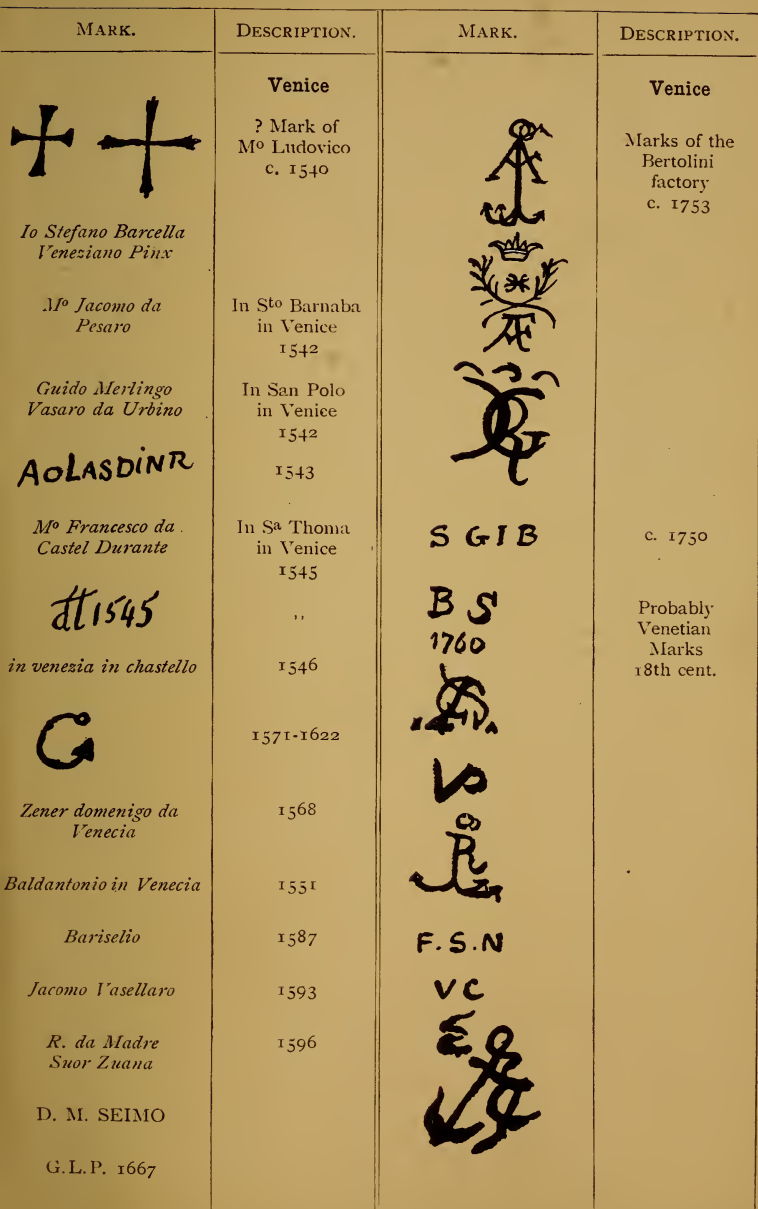 MARK.
DESCRIPTION.
MARK.
DESCRIPTION.
Venice
? Mark of
Mo Ludovico
c. 1540
Io Stefano Barcella
Veneziano Pinx
Mo Jacomo da
Pesaro
In Sto Barnaba
in Venice
1542
Guido Merlingo
Vasaro da Urbino
In San Polo
in Venice
1542
AOLASDINR
1543
Mo Francesco da
Castel Durante
In Sa Thoma
in Venice
1545
1545
,,
in venezia in chastello
1546
1571-1622
Zener domenigo da
Venecia
1568
Baldantonio in Venecia
1551
Bariselio
1587
Jacomo Vasellaro
1593
R. da Madre
Suor Zuana
1596
D. M. SEIMO
G.L.P. 1667
Venice
Marks of the
Bertolini
factory
c. 1753
S G I B
c. 1750
B S
1760
Probably
Venetian
Marks
18th cent.
F.S.N
VC